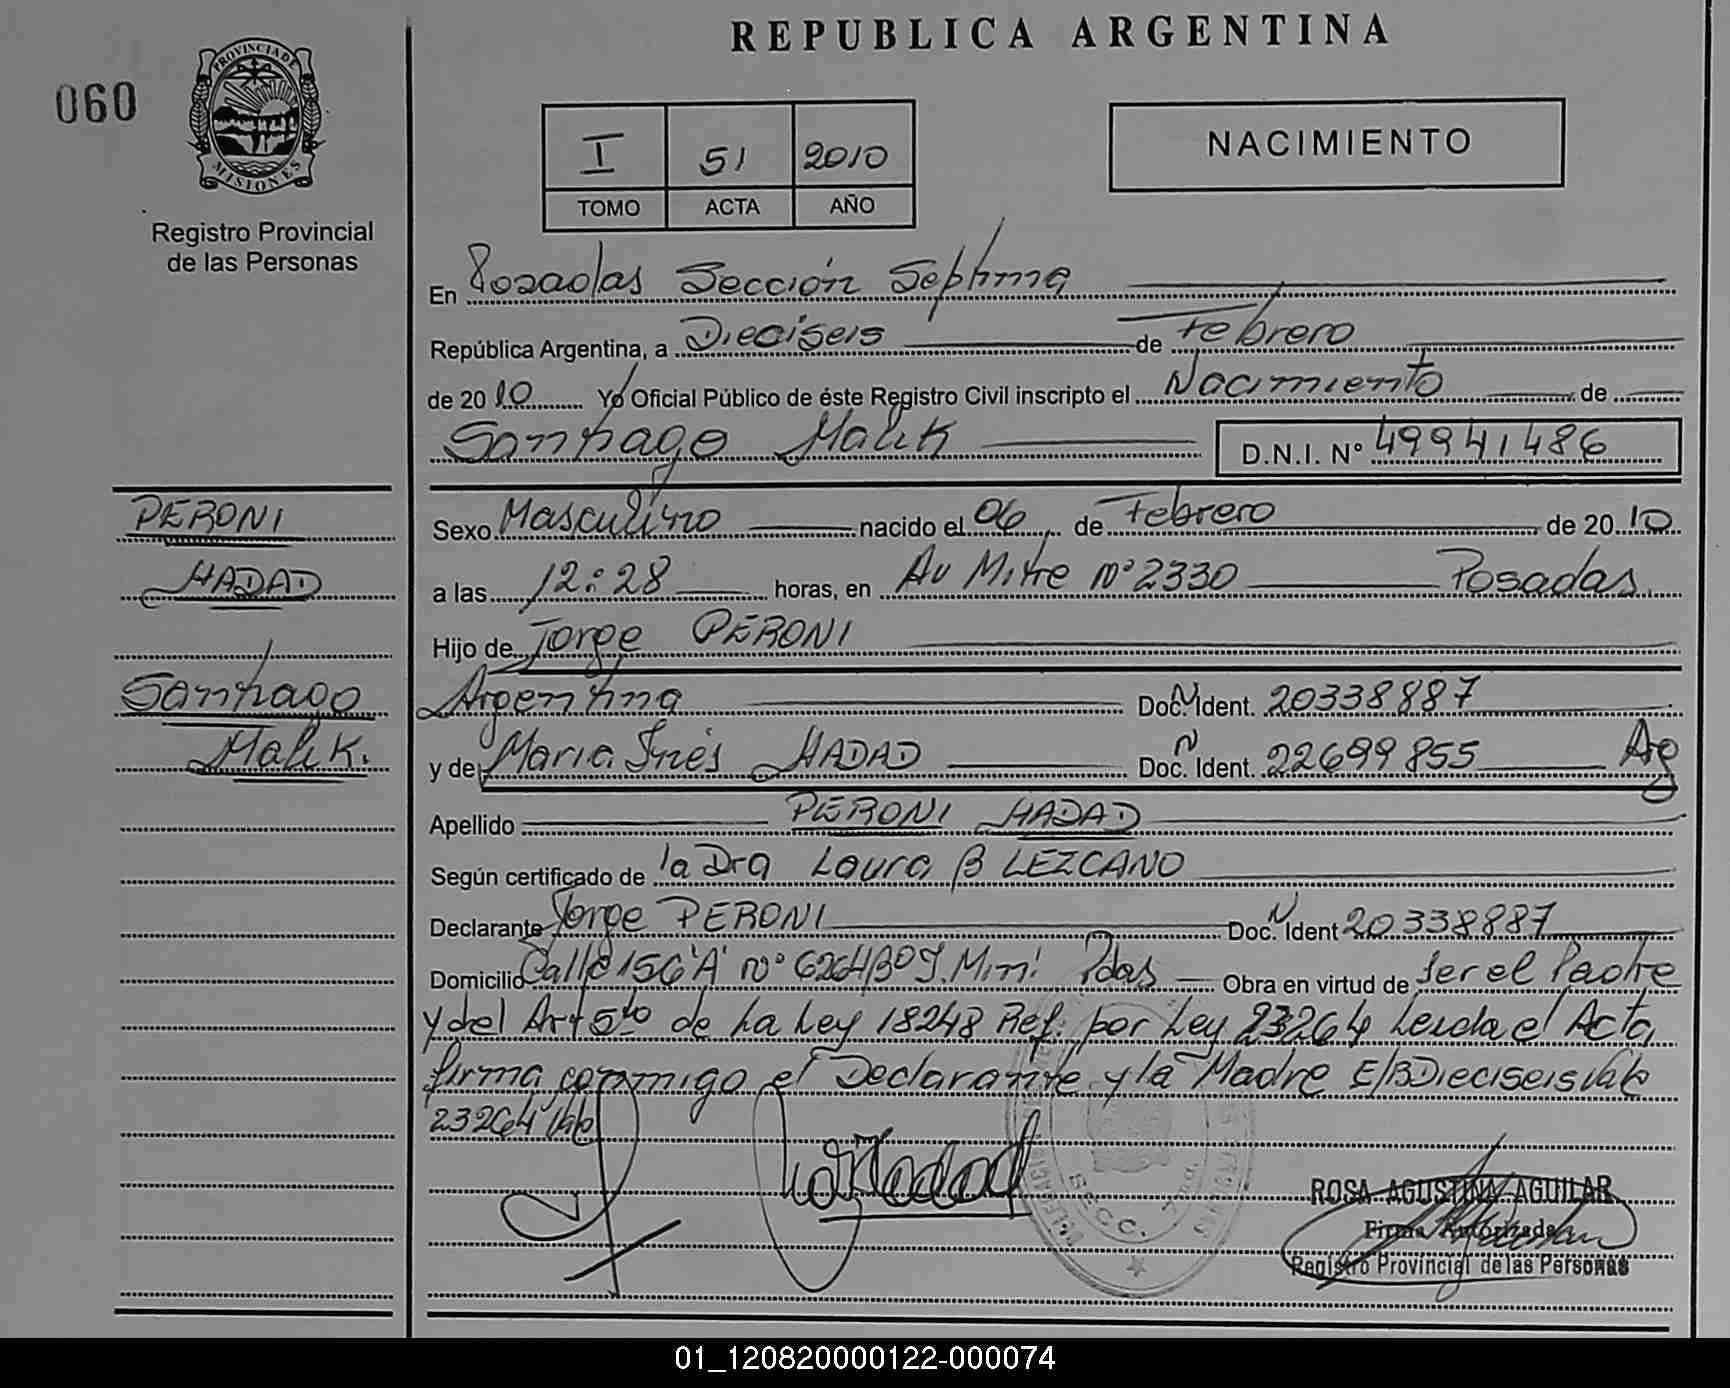 REPUBLICA ARGENTINA
060
PROVINCIA DE
MISIONES
Registro Provincial
de las Personas
I 51 2010
TOMO ACTA AÑO
NACIMIENTO
En Posadas Sección Septima
República Argentina, a Dieciseis de Febrero
de 2010 Yo Oficial Público de éste Registro Civil inscripto el Nacimiento de
Santiago Malik D.N.I. Nº 49941486
PERONI
HADAD
Santiago
Malik.
Sexo Masculino nacido el 06 de Febrero de 2010
a las 12:28 horas, en Av Mitre Nº 2330 Posadas.
Hijo de Jorge PERONI
Argentina Doc. N Ident. 20338887
y de Maria Inés HADAD Doc. N Ident. 22699855 Arg
Apellido PERONI HADAD
Según certificado de la Dra Laura B LEZCANO
Declarante Jorge PERONI Doc. N Ident 20338887
Domicilio Calle 156 'A' Nº 6264 Bº Pdas Obra en virtud de ser el Padre
y del Art 5to de La Ley 18248 Ref. por Ley 23264 Leida el Acta,
firma conmigo el Declarante y la Madre E/B Dieciseis Vale
23264 Vale
SECC. 7ma
ROSA AGUSTINA AGUILAR
Firma Autorizada
Registro Provincial de las Personas
01_120820000122-000074